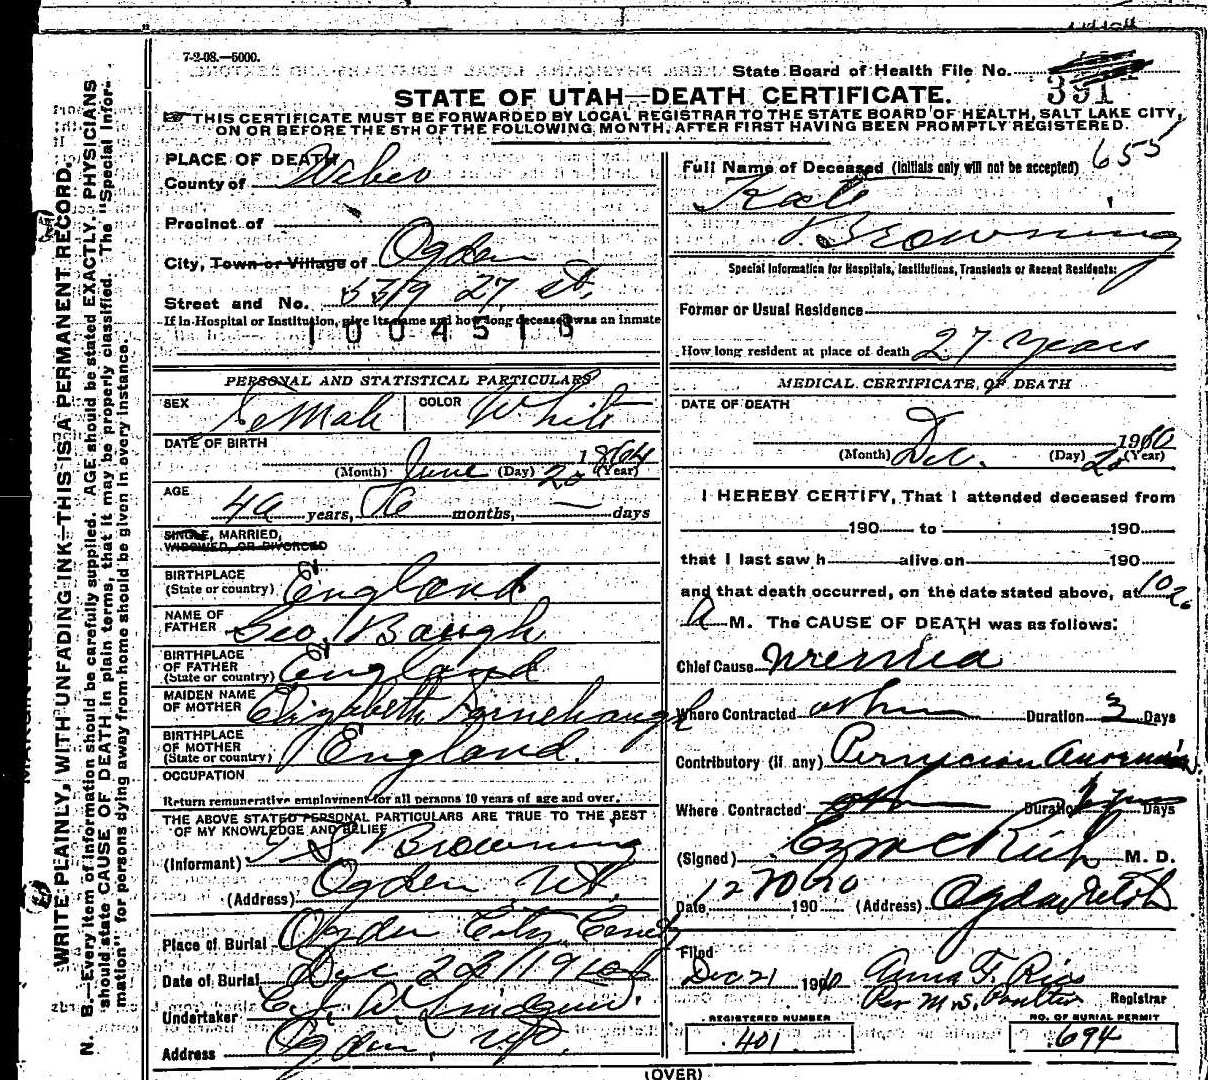 7-2-08.—5000.
State Board of Health File No. 391
STATE OF UTAH—DEATH CERTIFICATE.
THIS CERTIFICATE MUST BE FORWARDED BY LOCAL REGISTRAR TO THE STATE BOARD OF HEALTH, SALT LAKE CITY,
ON OR BEFORE THE 5TH OF THE FOLLOWING MONTH, AFTER FIRST HAVING BEEN PROMPTLY REGISTERED.
PLACE OF DEATH
County of Weber
Precinct of
City, Town or Village of Ogden
Street and No. 27 St.
If in Hospital or Institution, give its name and how long deceased was an inmate
1004513
PERSONAL AND STATISTICAL PARTICULARS
SEX Female COLOR White
DATE OF BIRTH
June 20 1864
(Month) (Day) (Year)
AGE
46 years, 6 months, — days
SINGLE, MARRIED,
WIDOWED, OR DIVORCED
BIRTHPLACE
(State or country) England
NAME OF
FATHER Geo. Baugh
BIRTHPLACE
OF FATHER
(State or country) England
MAIDEN NAME
OF MOTHER Elizabeth
BIRTHPLACE
OF MOTHER
(State or country) England.
OCCUPATION
Return remunerative employment for all persons 10 years of age and over.
THE ABOVE STATED PERSONAL PARTICULARS ARE TRUE TO THE BEST
OF MY KNOWLEDGE AND BELIEF
(Informant) T S Browning
(Address) Ogden Ut.
Place of Burial Ogden City Cemety
Date of Burial Dec 1910
Undertaker
Address Ogden,
655
Full Name of Deceased (Initials only will not be accepted)
Kate
Browning
Special Information for Hospitals, Institutions, Transients or Recent Residents:
Former or Usual Residence
How long resident at place of death 27 years
MEDICAL CERTIFICATE OF DEATH
DATE OF DEATH
Dec. 20 1910
(Month) (Day) (Year)
I HEREBY CERTIFY, That I attended deceased from
190 to 190
that I last saw h alive on 190
and that death occurred, on the date stated above, at 10
A M. The CAUSE OF DEATH was as follows:
Chief Cause Uremia
Where Contracted Duration 3 Days
Contributory (if any)
Where Contracted Duration Days
(Signed) Rich M. D.
Date 12 20 1910 (Address) Ogden Utah
Filed
Dec 21 1910 Anna F.
Per M. S. Poulter Registrar
REGISTERED NUMBER
401
NO. OF BURIAL PERMIT
694
(OVER)
WRITE PLAINLY, WITH UNFADING INK—THIS IS A PERMANENT RECORD.
N. B.—Every item of information should be carefully supplied. AGE should be stated EXACTLY. PHYSICIANS
should state CAUSE OF DEATH in plain terms, that it may be properly classified. The "Special Infor-
mation" for persons dying away from home should be given in every instance.